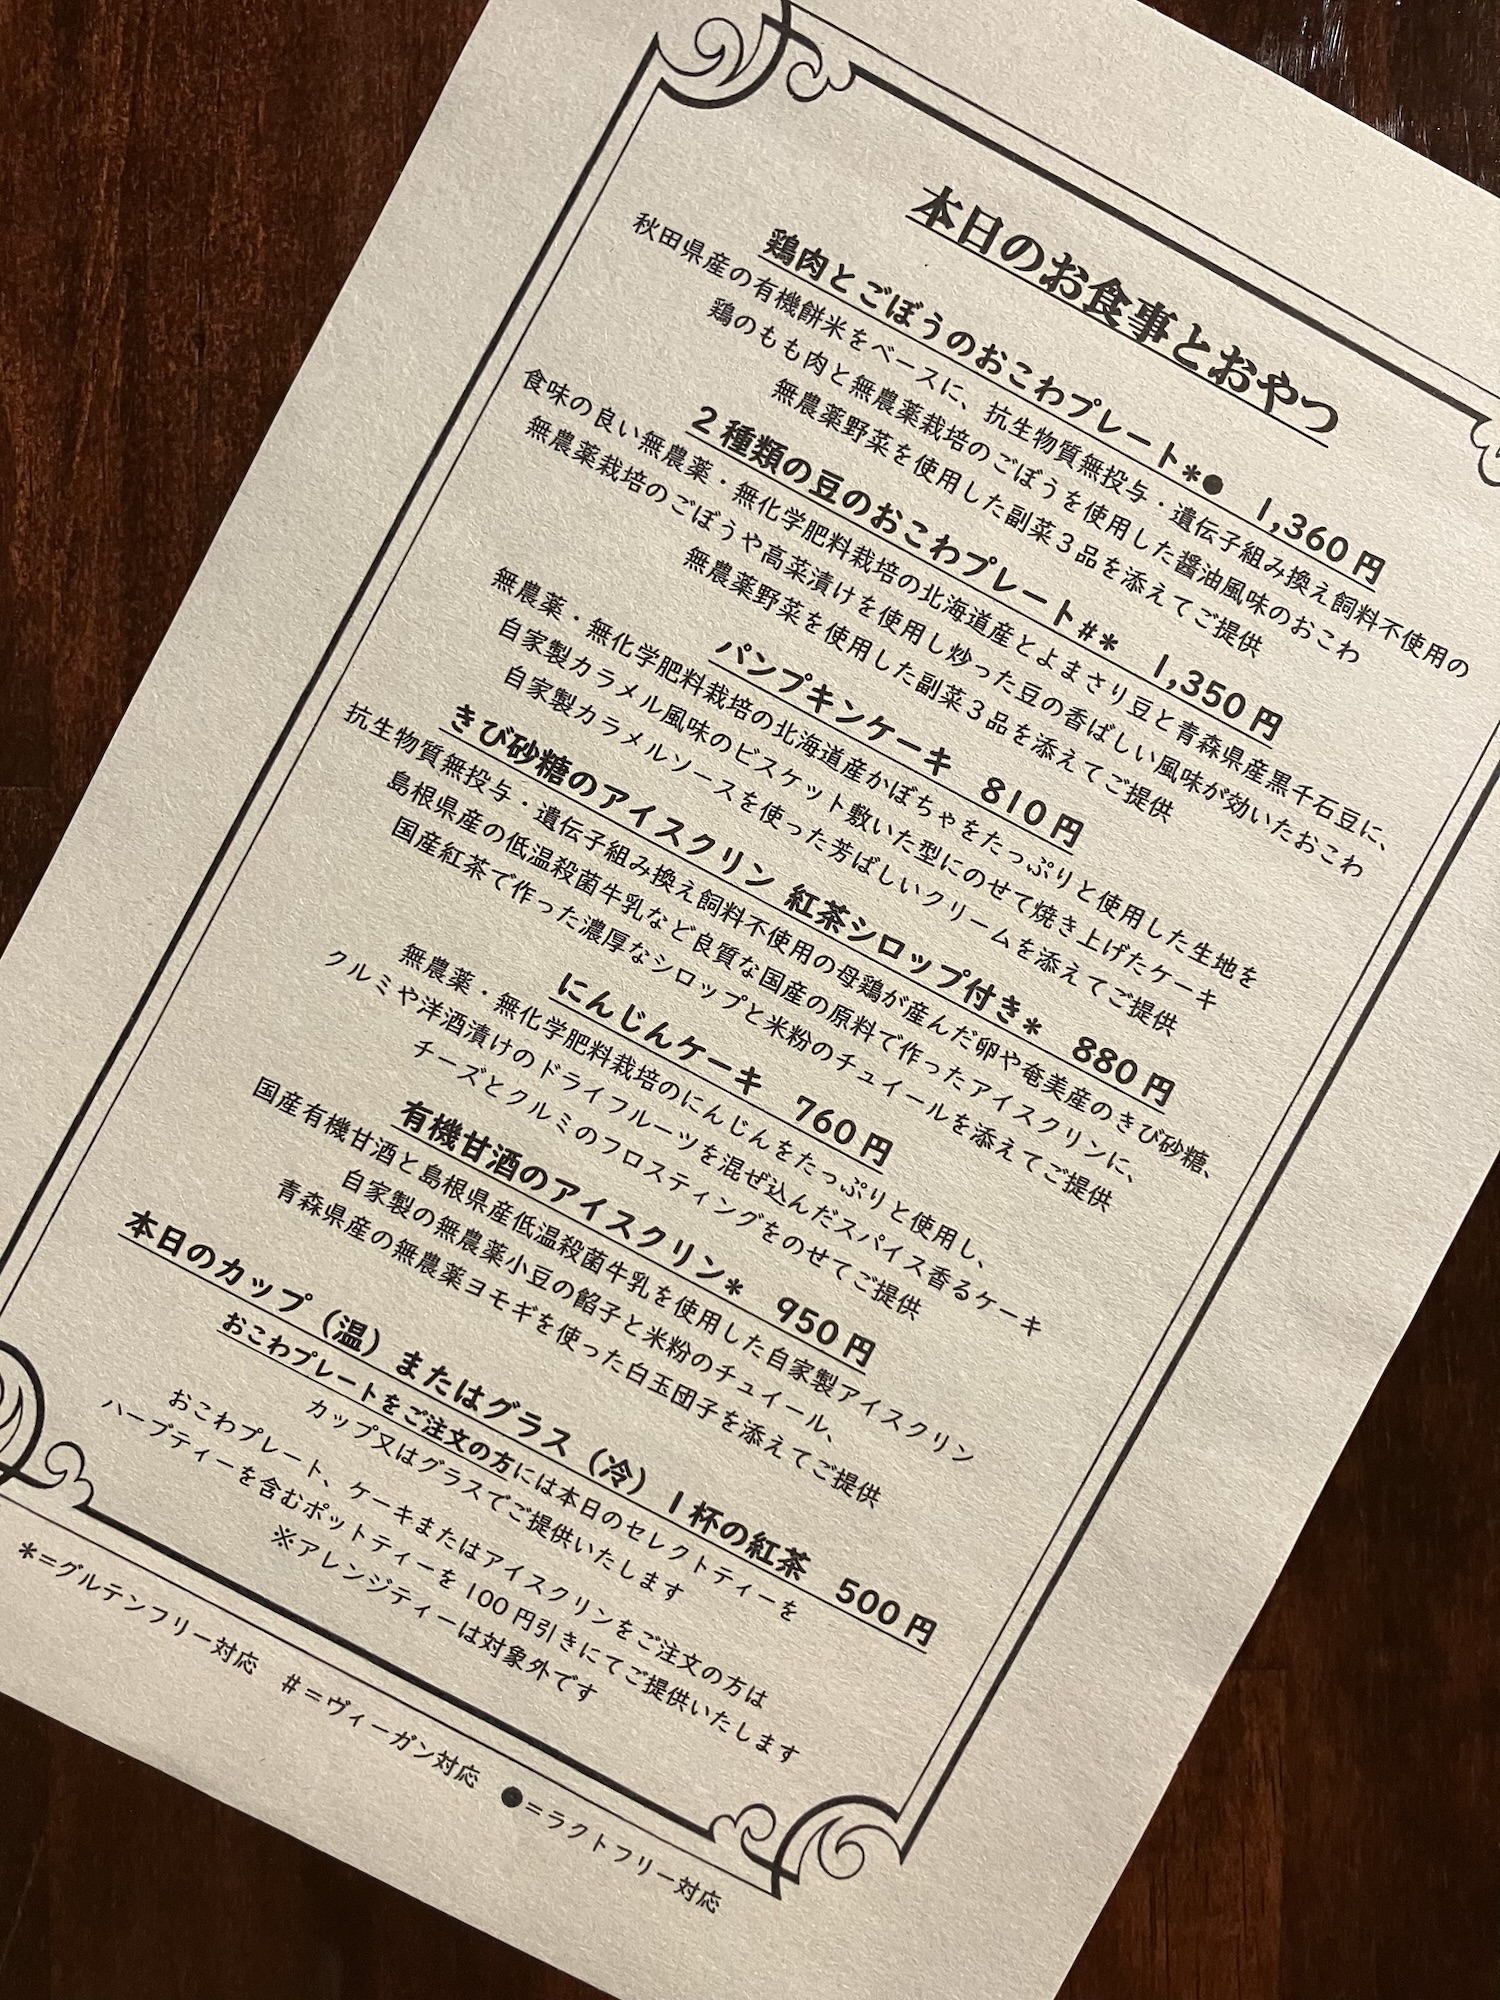 本日のお食事とおやつ
鶏肉とごぼうのおこわプレート*● 1,360円
秋田県産の有機餅米をベースに、抗生物質無投与・遺伝子組み換え飼料不使用の
鶏のもも肉と無農薬栽培のごぼうを使用した醤油風味のおこわ
無農薬野菜を使用した副菜3品を添えてご提供
2種類の豆のおこわプレート#* 1,350円
食味の良い無農薬・無化学肥料栽培の北海道産とよまさり豆と青森県産黒千石豆に、
無農薬栽培のごぼうや高菜漬けを使用し炒った豆の香ばしい風味が効いたおこわ
無農薬野菜を使用した副菜3品を添えてご提供
パンプキンケーキ 810円
無農薬・無化学肥料栽培の北海道産かぼちゃをたっぷりと使用した生地を
自家製カラメル風味のビスケット敷いた型にのせて焼き上げたケーキ
自家製カラメルソースを使った芳ばしいクリームを添えてご提供
きび砂糖のアイスクリン 紅茶シロップ付き* 880円
抗生物質無投与・遺伝子組み換え飼料不使用の母鶏が産んだ卵や奄美産のきび砂糖、
島根県産の低温殺菌牛乳など良質な国産の原料で作ったアイスクリンに、
国産紅茶で作った濃厚なシロップと米粉のチュイールを添えてご提供
にんじんケーキ 760円
無農薬・無化学肥料栽培のにんじんをたっぷりと使用し、
クルミや洋酒漬けのドライフルーツを混ぜ込んだスパイス香るケーキ
チーズとクルミのフロスティングをのせてご提供
有機甘酒のアイスクリン* 950円
国産有機甘酒と島根県産低温殺菌牛乳を使用した自家製アイスクリン
自家製の無農薬小豆の餡子と米粉のチュイール、
青森県産の無農薬ヨモギを使った白玉団子を添えてご提供
本日のカップ（温）またはグラス（冷）1杯の紅茶 500円
おこわプレートをご注文の方には本日のセレクトティーを
カップ又はグラスでご提供いたします
おこわプレート、ケーキまたはアイスクリンをご注文の方は
ハーブティーを含むポットティーを100円引きにてご提供いたします
※アレンジティーは対象外です
*=グルテンフリー対応 #=ヴィーガン対応 ●=ラクトフリー対応